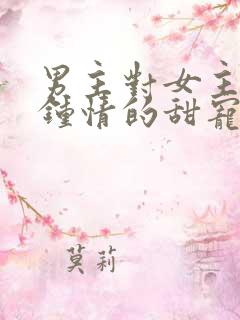 男主對女主
鍾情的甜寵
莫莉